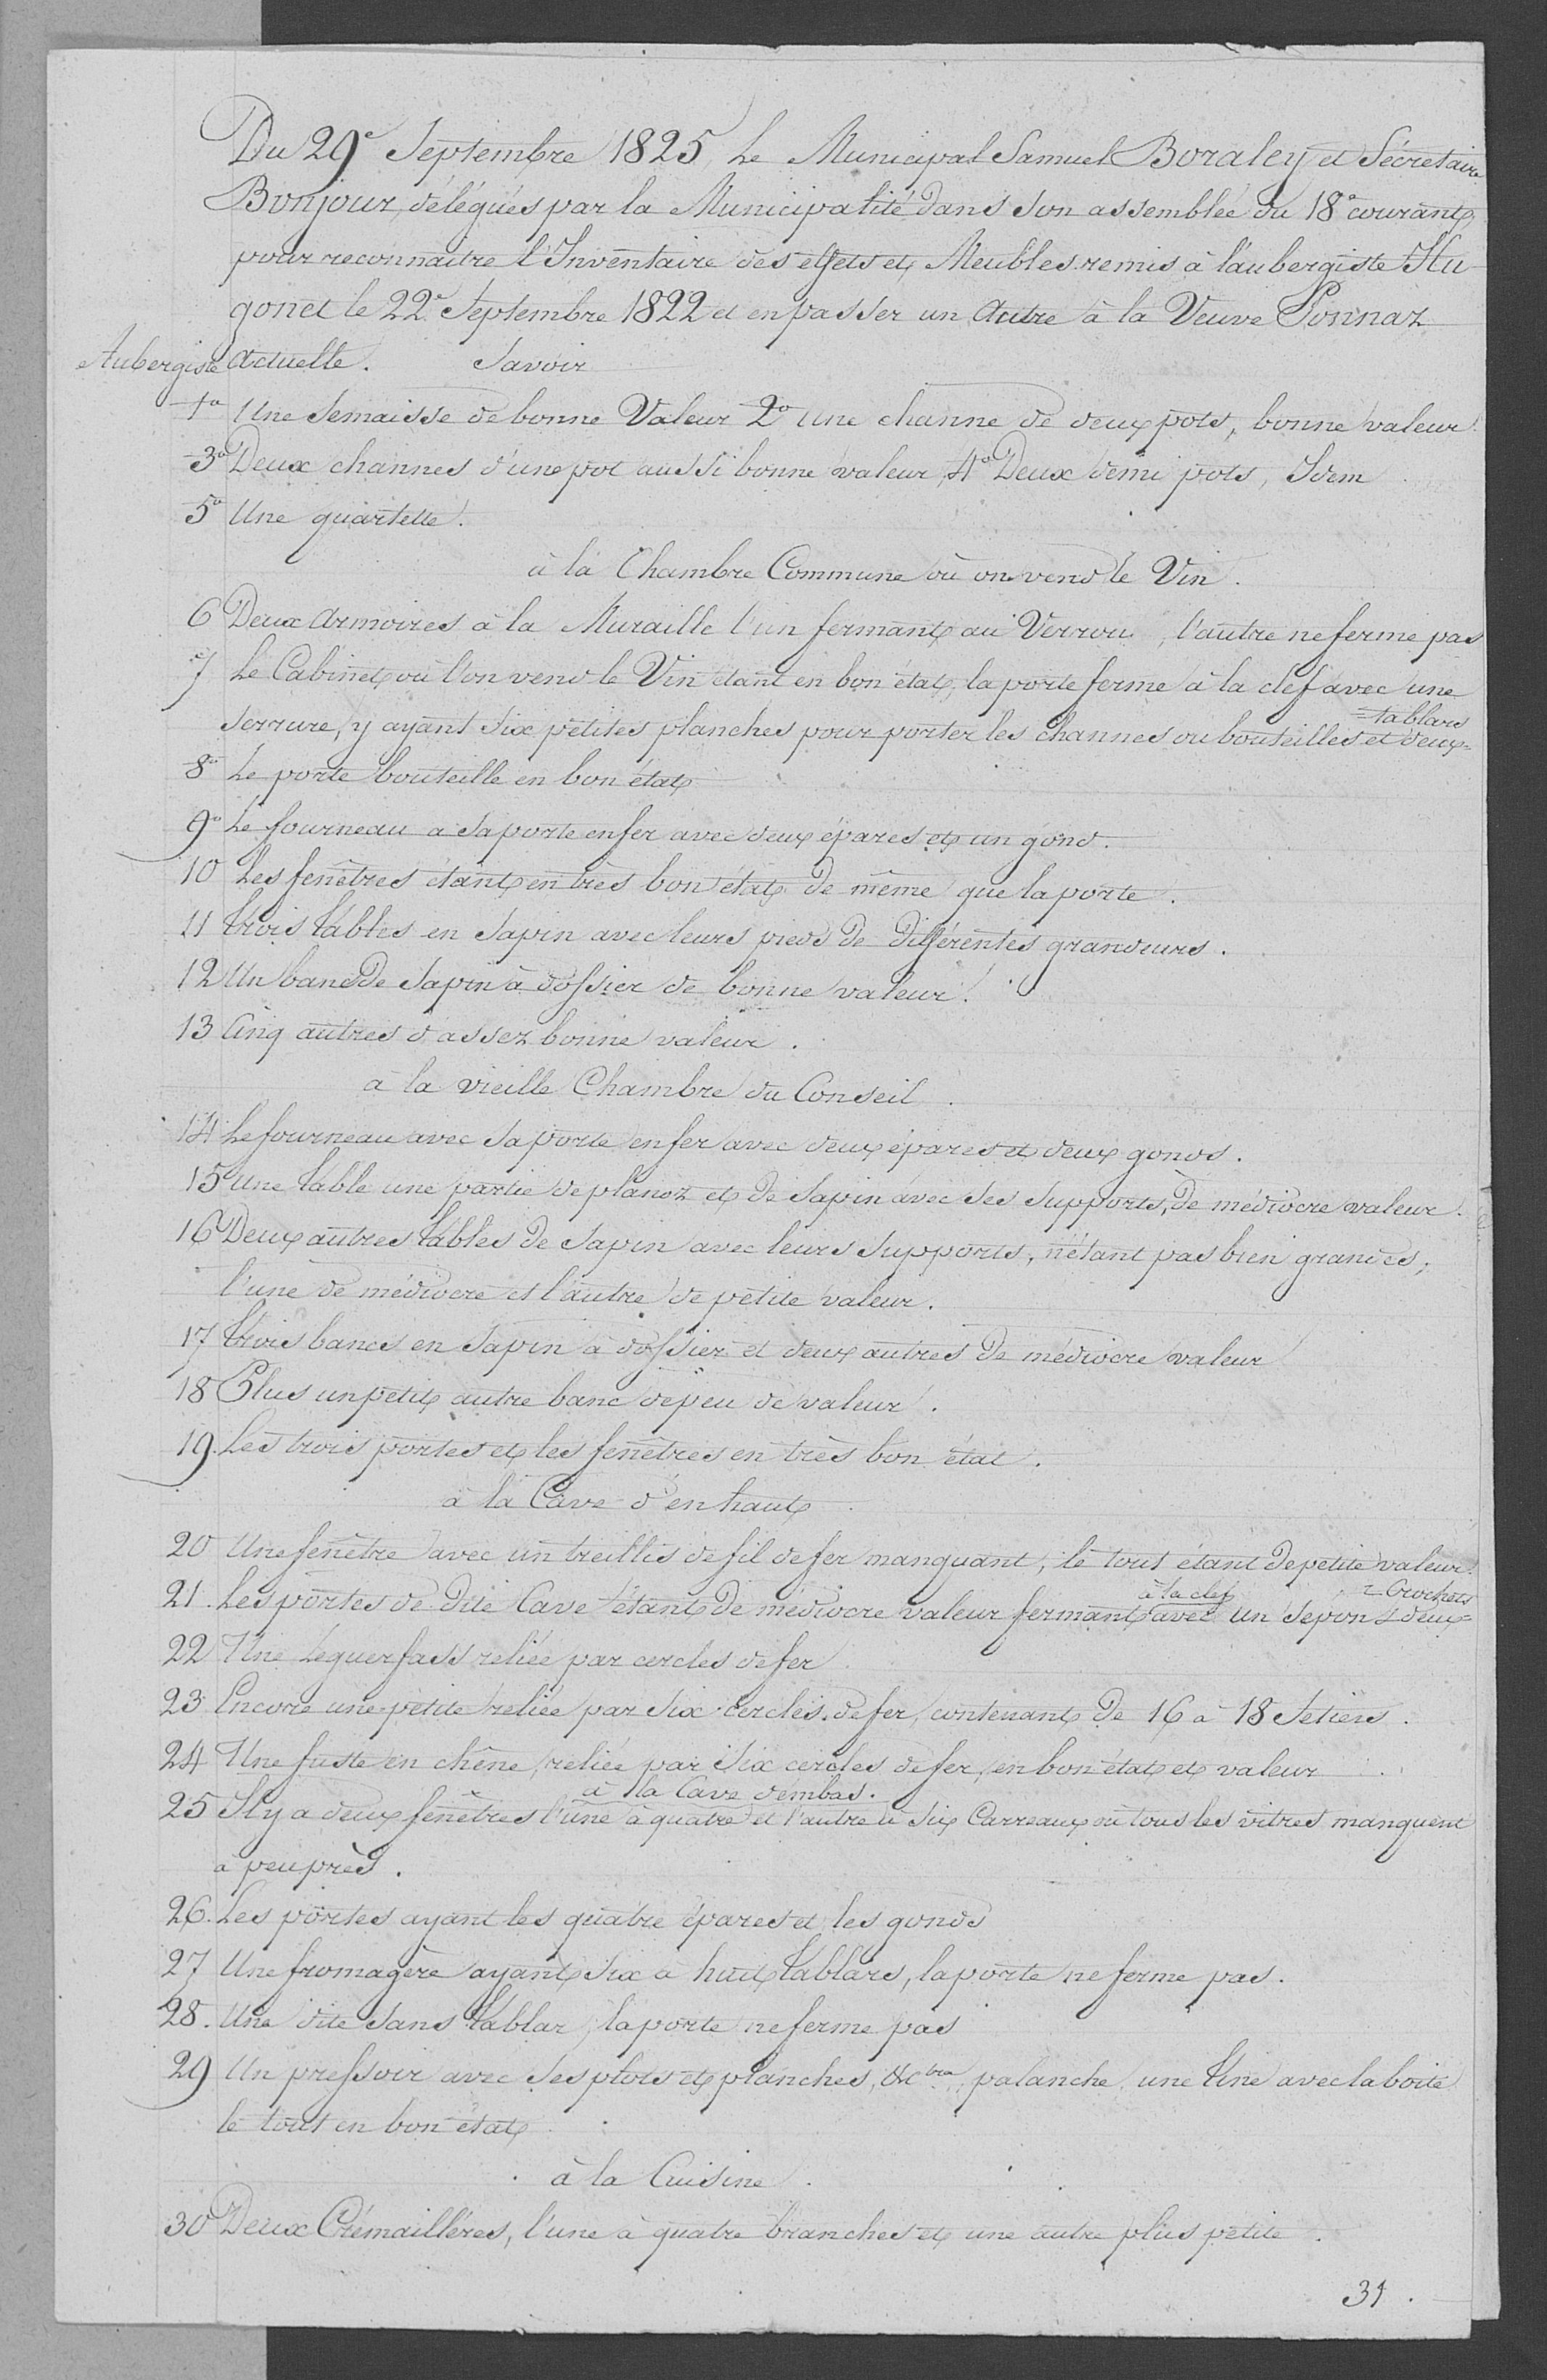 Du 29e Septembre 1825, Le Municipal Samuel Boraley et Sécretaire
Bonjour, délégués par la Municipalité dans son assemblée du 18e courant,
pour reconnaitre l'Inventaire des effets et Meubles remis à l'aubergiste Hu
gonet le 22e Septembre 1822 et en passer un Autre à la Veuve Ponnaz
Aubergiste Actuelle. Savoir
1o Une Semaisse de bonne Valeur 2o Une channe de deux pots, bonne valeur.
3o Deux channes d'une pot aussi bonne valeur, 4o Deux demi pots, Idem
5o Une quartette.
à la Chambre Commune où on vend le Vin.
6 Deux Armoires à la Muraille l'un fermant au Verrou, l'autre ne ferme pas
7 Le Cabinet où l'on vend le Vin étant en bon état, la porte ferme à la clef avec une
=tablars
serrure, y ayant Six petites planches pour porter les channes ou bouteilles et deux=
8o Le porte bouteille en bon état
9o Le fourneau a sa porte en fer avec deux épares et un gond.
10 Les fenêtres étant en très bon état de même que la porte.
11 Trois tables en Sapin avec leurs pieds de différentes grandeurs.
12 Un banc de Sapin à dossier de bonne valeur.
13 Cinq autres d'assez bonne valeur.
à la vieille Chambre du Conseil.
14 Le fourneau avec sa porte en fer avec deux épares et deux gonds.
15 Une table une partie de planoz et de Sapin avec ses supports, de médiocre valeur.
16 Deux autres tables de Sapin avec leurs supports, n'étant pas bien grandes;
l'une de médiocre et l'autre de petite valeur.
17 Trois bancs en Sapin à dossier et deux autres de médiocre valeur
18 Plus un petit autre banc de peu de valeur.
19. Les trois portes et les fenêtres en très bon état.
à la Cave d'en haut
20 Une fenêtre avec un treillis de fil de fer manquant, le tout étant de petite valeur.
à la clef =Crochets
21. Les portes de dite Cave étant de médiocre valeur fermant avec un Sepon & deux=
22 Une Leguerfass reliée par cercles de fer
23 Encore une petite reliée par Six cercles de fer, contenant de 16 à 18 Setiers.
24 Une fuste en chêne, reliée par Six cercles de fer, en bon état et valeur
à la Cave d'embas.
25 Il y a deux fenêtres l'une à quatre et l'autre à Six Carreaux où tous les vitres manquent
à peu près.
26. Les portes ayant les quatre épares et les gonds
27 Une fromagère ayant Six à huit tablars, la porte ne ferme pas.
28. Une dite sans tablar, la porte ne ferme pas
29 Un pressoir avec ses plots et planches, &ctra palanche, une Tine avec la boite
le tout en bon état
à la Cuisine.
30 Deux Crémaillères, l'une à quatre branches et une autre plus petite.
31.